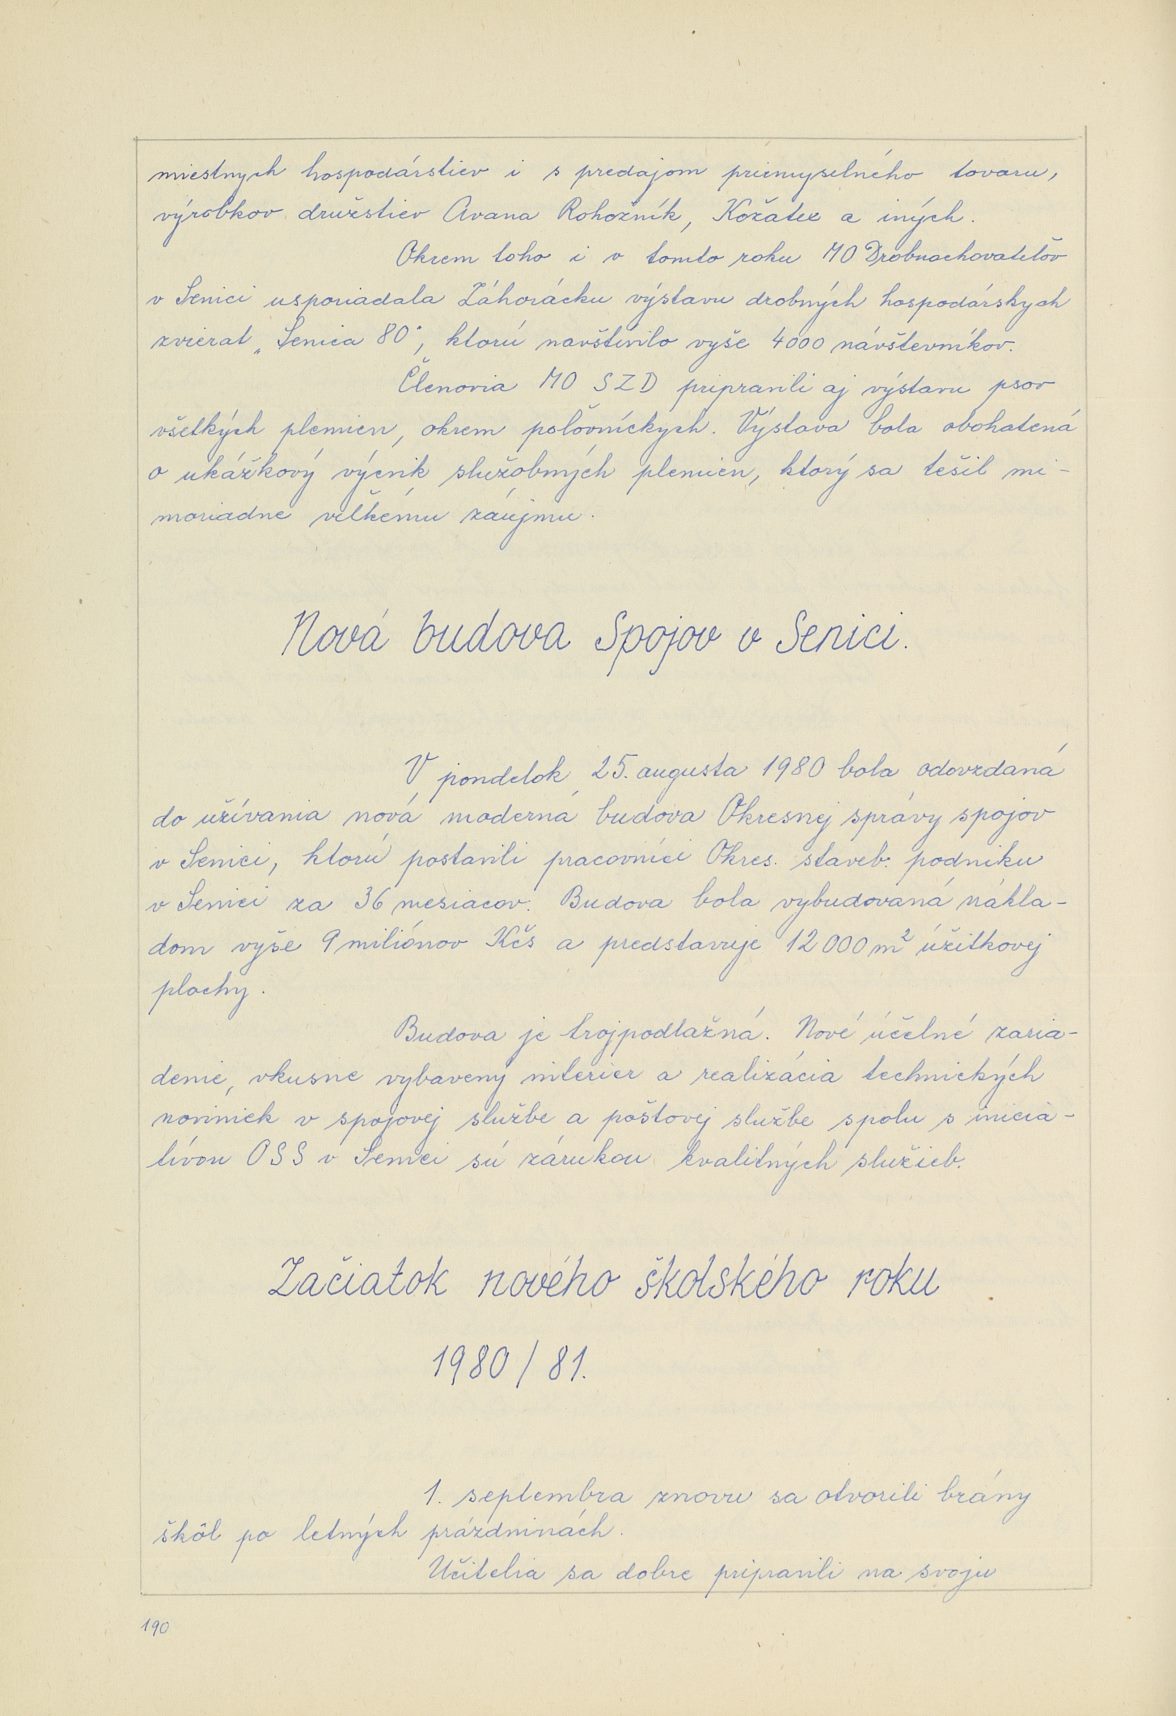 miestnych hospodárstiev i s predajom priemyselného tovaru,
výrobkov družstiev Avana Rohožník, Kožatex a iných.
Okrem toho i v tomto roku MO Drobnochovateľov
v Senici usporiadala Záhorácku výstavu drobných hospodárskych
zvierat „Senica 80", ktorú navštívilo vyše 4000 návštevníkov.
Členovia MO SZD pripravili aj výstavu psov
všetkých plemien, okrem poľovníckych. Výstava bola obohatená
o ukážkový výcvik služobných plemien, ktorý sa tešil mi-
moriadne veľkému záujmu.
Nová budova Spojov v Senici.
V pondelok 25. augusta 1980 bola odovzdaná
do užívania nová moderná budova Okresnej správy spojov
v Senici, ktorú postavili pracovníci Okres. staveb. podniku
v Senici za 36 mesiacov. Budova bola vybudovaná nákla-
dom vyše 9 miliónov Kčs a predstavuje 12 000 m² úžitkovej
plochy.
Budova je trojpodlažná. Nové účelné zaria-
denie, vkusne vybavený interier a realizácia technických
noviniek v spojovej službe a poštovej službe spolu s iniciá-
tívou OSS v Senici sú zárukou kvalitných služieb.
Začiatok nového školského roku
1980/81.
1. septembra znovu sa otvorili brány
škôl po letných prázdninách.
Učitelia sa dobre pripravili na svoju
190